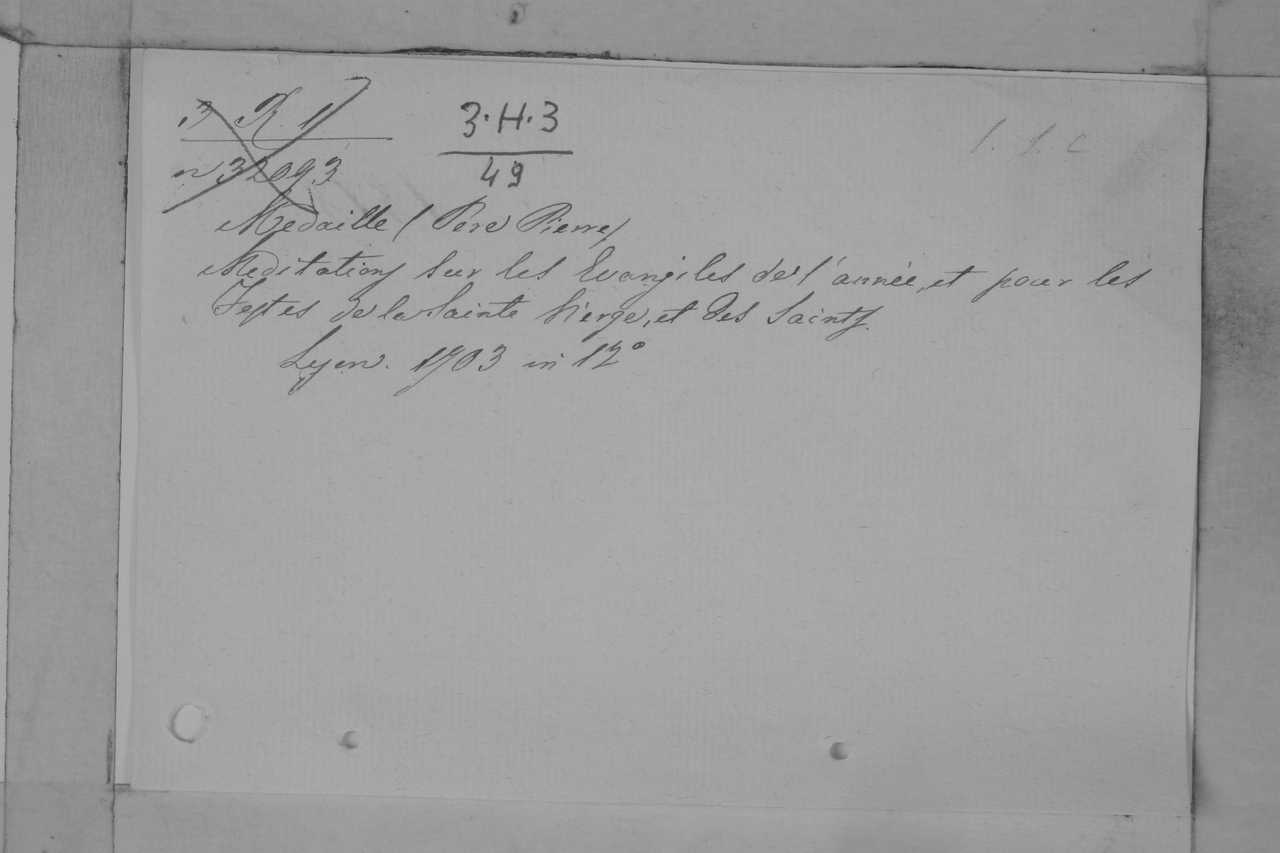 3 K 1
n 32093
3·H·3
49
1. 1. c
Medaille (Père Pierre)
Meditations sur les Evangiles de l'année, et pour les
Festes de la Sainte Vierge, et des Saints.
Lyon. 1703 in 12°